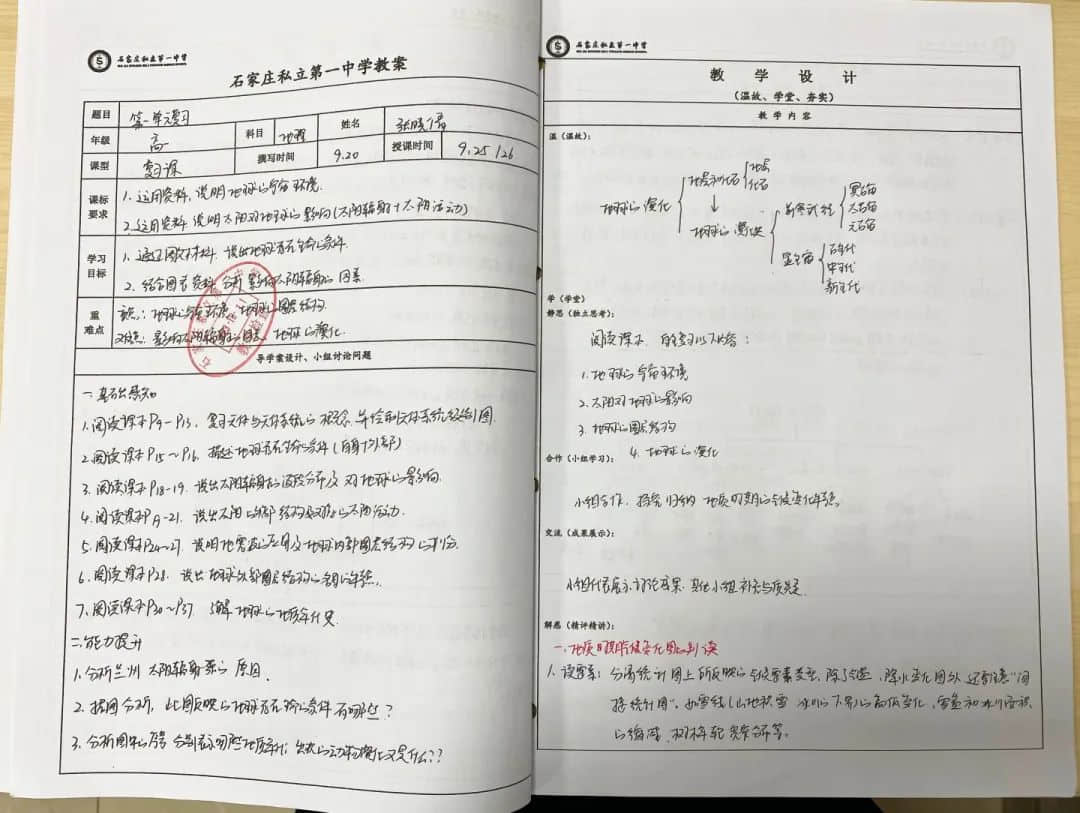 石家庄私立第一中学
石家庄私立第一中学教案
题目 第一单元复习
年级 高一 科目 地理 姓名
课型 复习课 撰写时间 9.20 授课时间 9.25/26
课标要求
1.运用资料,说明地球的宇宙环境.
2.运用资料 说明太阳对地球的影响(太阳辐射+太阳活动)
学习目标
1.通过图文材料 说出地球存在生命的条件.
2.结合图文资料 分析影响太阳辐射的因素.
重难点
重点:地球的宇宙环境、地球的圈层结构.
难点:影响太阳辐射的因素、地球的演化.
导学案设计、小组讨论问题
一.基础感知
1.阅读课本P9-P13,复习天体与天体系统的概念,并绘制天体系统级别图.
2.阅读课本P15~P16.描述地球存在生命的条件(自身+外部)
3.阅读课本P18-19.说出太阳辐射的 分布及对地球的影响.
4.阅读课本 -21.说出太阳 外部结构及对应的太阳活动.
5.阅读课本P24~27.说明地震波的应用及地球内部圈层结构的划分.
6.阅读课本P28.说出地球外部圈层结构的名称与特点.
7.阅读课本P30~P37 了解地球的地质年代史
二.能力提升
1.分析兰州太阳辐射 的原因.
2.据图分析,此图反映的地球存在生命的条件有哪些?
3.分析图中 分别 哪些地质年代;出 的动植物 又是什么??
石家庄私立第一中学
教 学 设 计
(温故、学堂、夯实)
教 学 内 容
温(温故):
地球的演化
地层和化石 地层 化石
↓
地球的演化
前寒武纪 冥古宙 太古宙 元古宙
显生宙 古生代 中生代 新生代
学(学堂)
静思(独立思考):
阅读课本 自主复习以下内容:
1.地球的宇宙环境
2.太阳对地球的影响
3.地球的圈层结构
4.地球的演化
合作(小组学习):
小组合作,探究归纳 地质时期的气候变化特点
交流(成果展示):
小组代表展示讨论成果.其他小组补充与质疑
解惑(精评精讲):
一.地质时期气候变化图的判读
1.读要素: 统计图上所反映的气候要素类型,除气温、降水变化图外 还要注意“间
接统计图”,如雪线(山地积雪 冰川的下界)的高低变化,雪盖和冰川面积
的缩减、树木年轮 等。